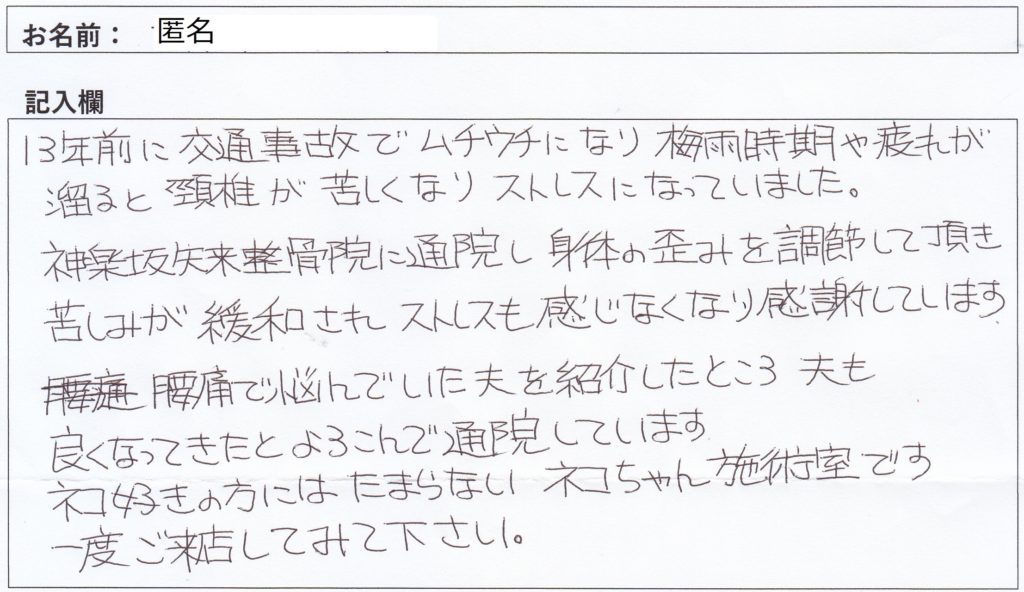 お名前： 匿名
記入欄
13年前に 交通事故で ムチウチになり 梅雨時期や疲れが
溜ると 頸椎が 苦しくなり ストレスになっていました。
神楽坂矢来整骨院に通院し 身体の歪みを調節して頂き
苦しみが 緩和され ストレスも感じなくなり感謝しています
腰痛で悩んでいた夫を紹介したところ 夫も
良くなってきたとよろこんで通院しています
ネコ好きの方には たまらない ネコちゃん施術室です
一度ご来店してみて下さい。